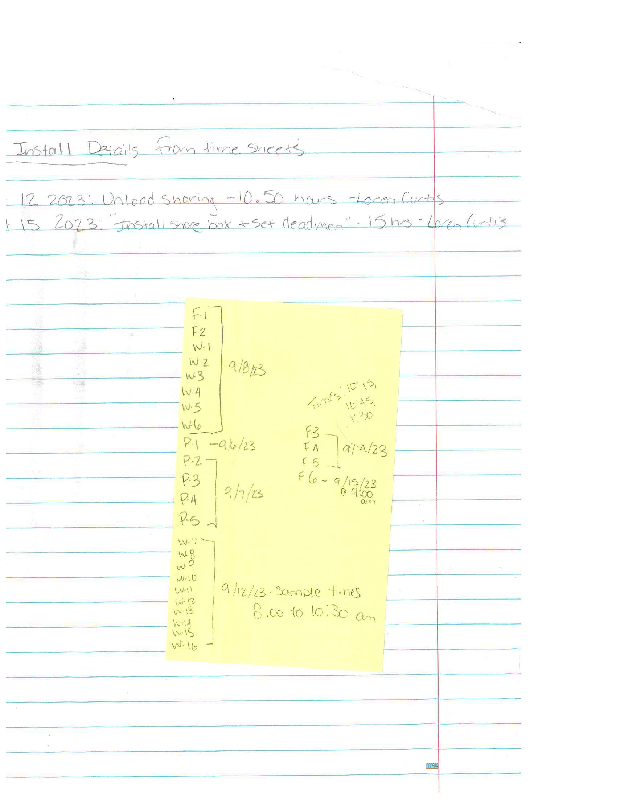 Install Details from time sheets
12 2023: Unload shoring - 10.50 hours - Loren Curtis
15 2023: "Install shore box + set deadmen" - 15 hrs - Loren Curtis
F1
F2
W-1
W-2
W-3
W-4
W-5
W-6
9/8/23
P-1 - 9/6/23
P-2
P-3
P-4
P-5
9/7/23
Times: 10:15,
10:45,
F3
F4
F5
F6 - 9/15/23
@ 9:00
am
W-7
W-8
W-9
W-10
W-11
W-12
W-13
W-14
W-15
W-16
9/12/23 - Sample times
8:00 to 10:30 am